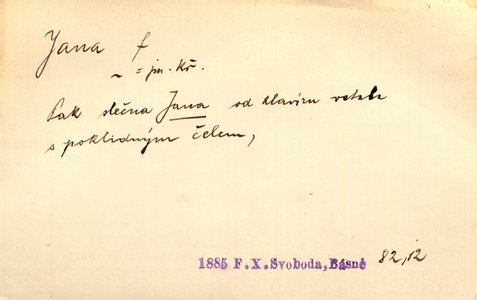 Jana f
~ = jm. kř.
Pak slečna Jana od klavíru vstala
s poklidným čelem,
1885 F.X.Svoboda,Básně 82,12